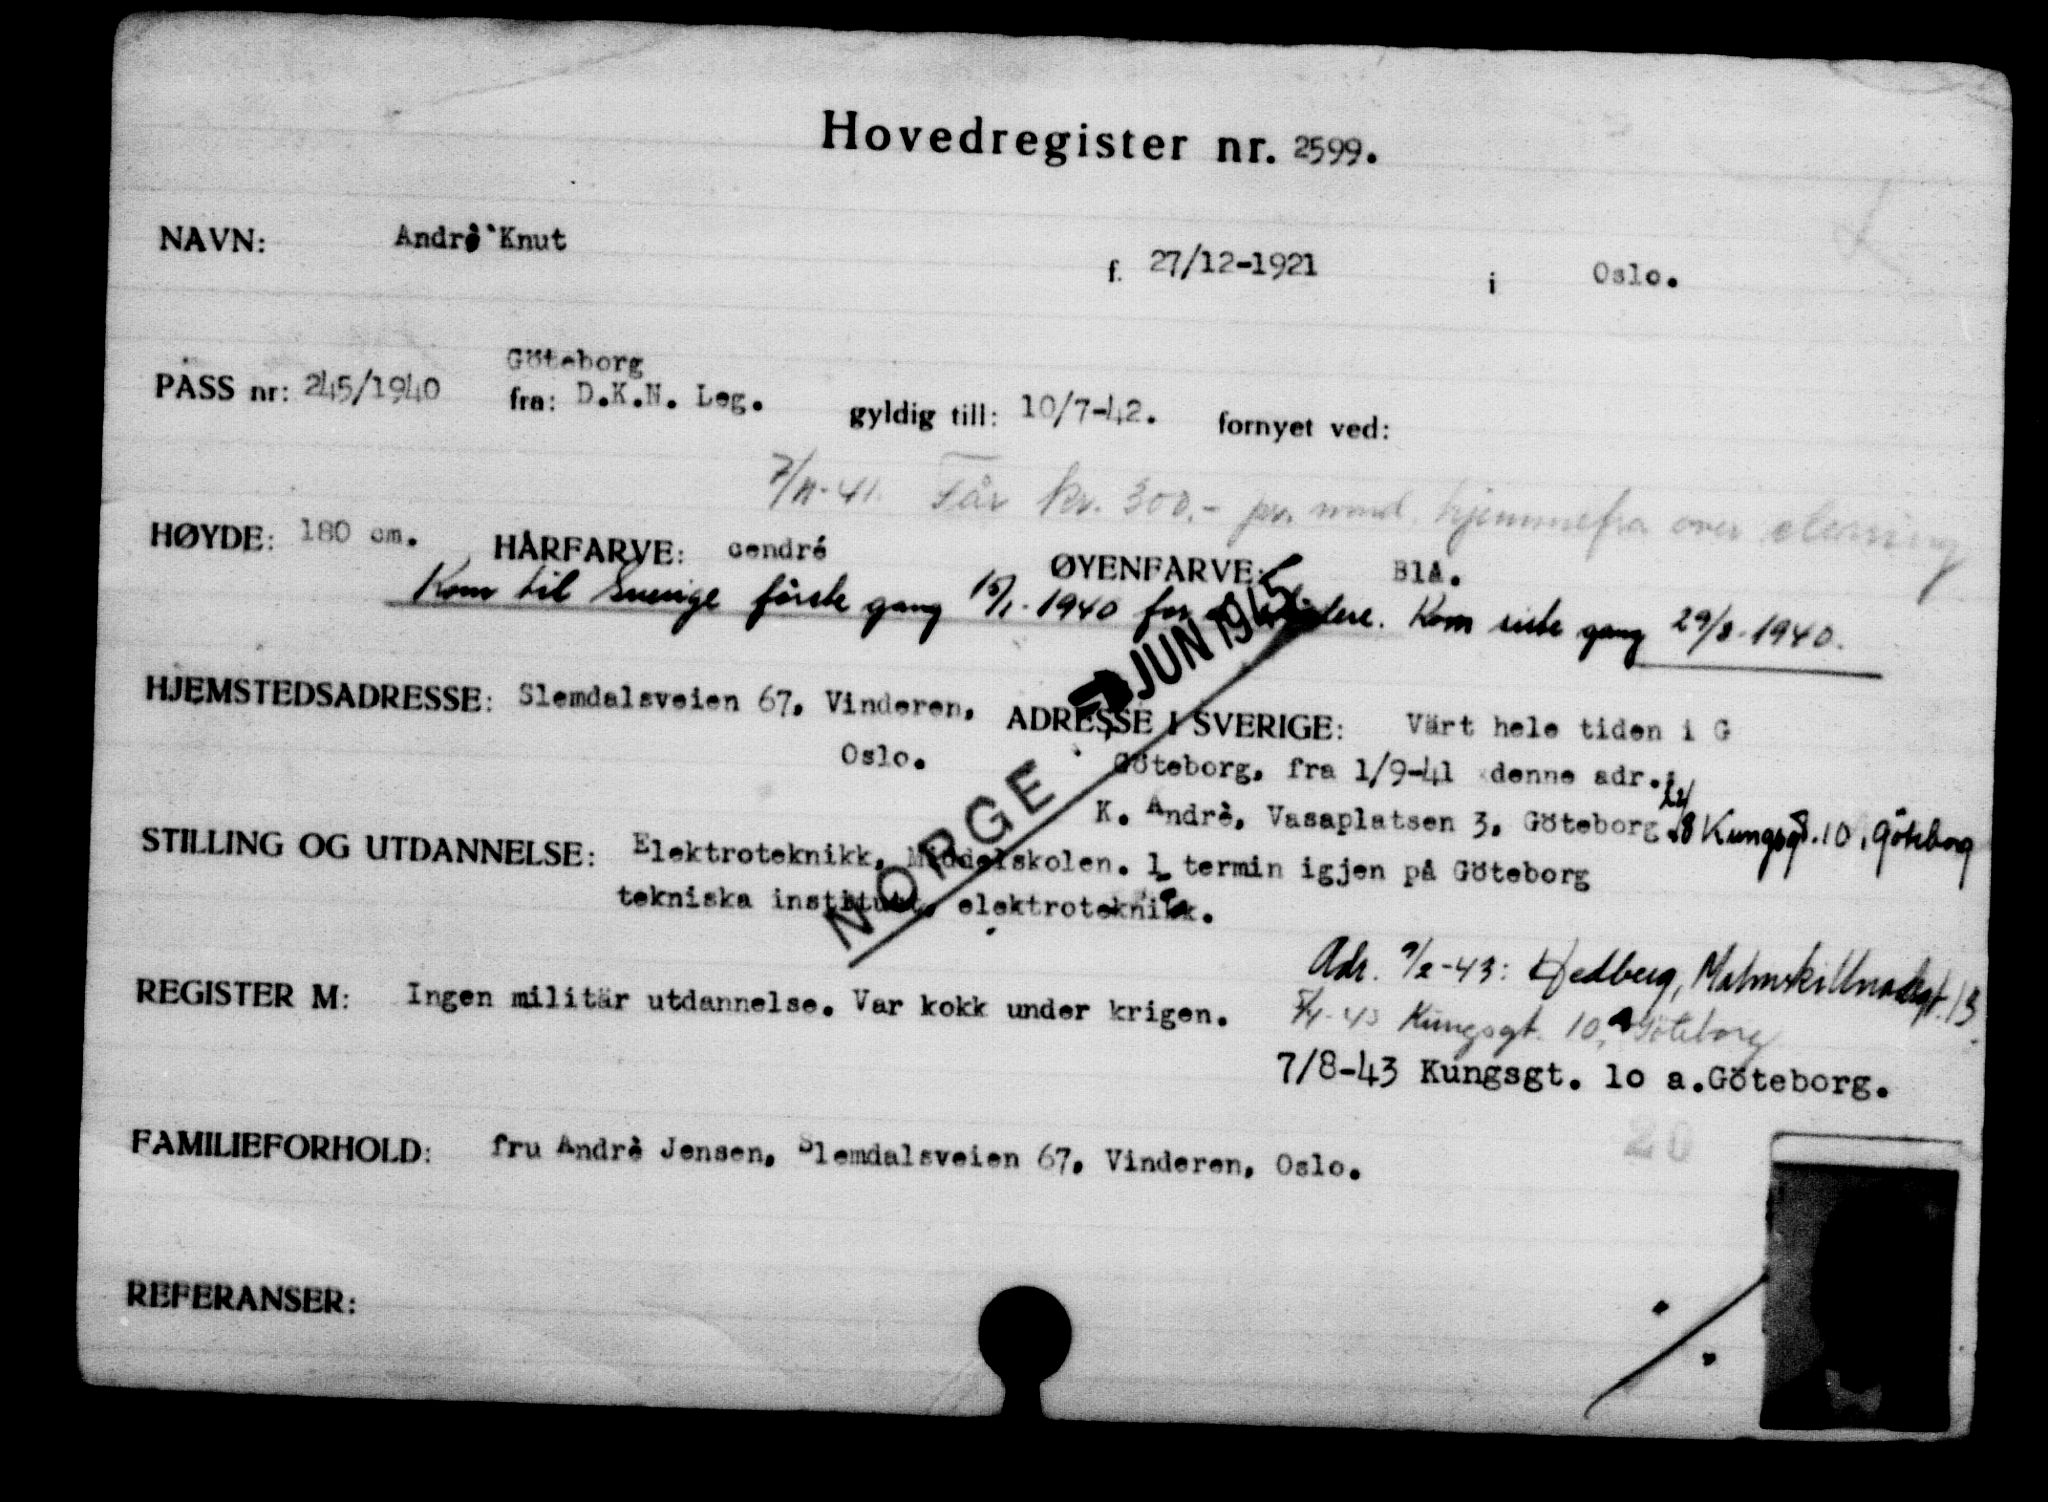 Hovedregister nr. 2599.
NAVN: Andrè Knut f. 27/12-1921 i Oslo.
Göteborg
PASS nr: 245/1940 fra: D.K.N. Leg. gyldig till: 10/7-42. fornyet ved:
7/11-41. Får kr. 300.- pr. mnd. hjemmefra over clearing
HØYDE: 180 cm. HÅRFARVE: cendré ØYENFARVE: Blå.
Kom til Sverige første gang 15/1-1940 for å studere. Kom siste gang 29/8-1940.
JUN 1945
HJEMSTEDSADRESSE: Slemdalsveien 67, Vinderen, ADRESSE I SVERIGE: Värt hele tiden i G
Oslo. Göteborg, fra 1/9-41 denne adr.:
K. Andrè, Vasaplatsen 3, Göteborg. Kungsgt. 10, Göteborg
NORGE
STILLING OG UTDANNELSE: Elektroteknikk, Middelskolen. 1 termin igjen på Göteborg
tekniska institutt, elektroteknikk.
Adr. 9/2-43: Hedberg, Malmskillnadsgt. 13
REGISTER M: Ingen militär utdannelse. Var kokk under krigen.
5/4-43 Kungsgt. 10a, Göteborg
7/8-43 Kungsgt. 10 a.Göteborg.
20
FAMILIEFORHOLD: fru Andrè Jensen, Slemdalsveien 67, Vinderen, Oslo.
REFERANSER: